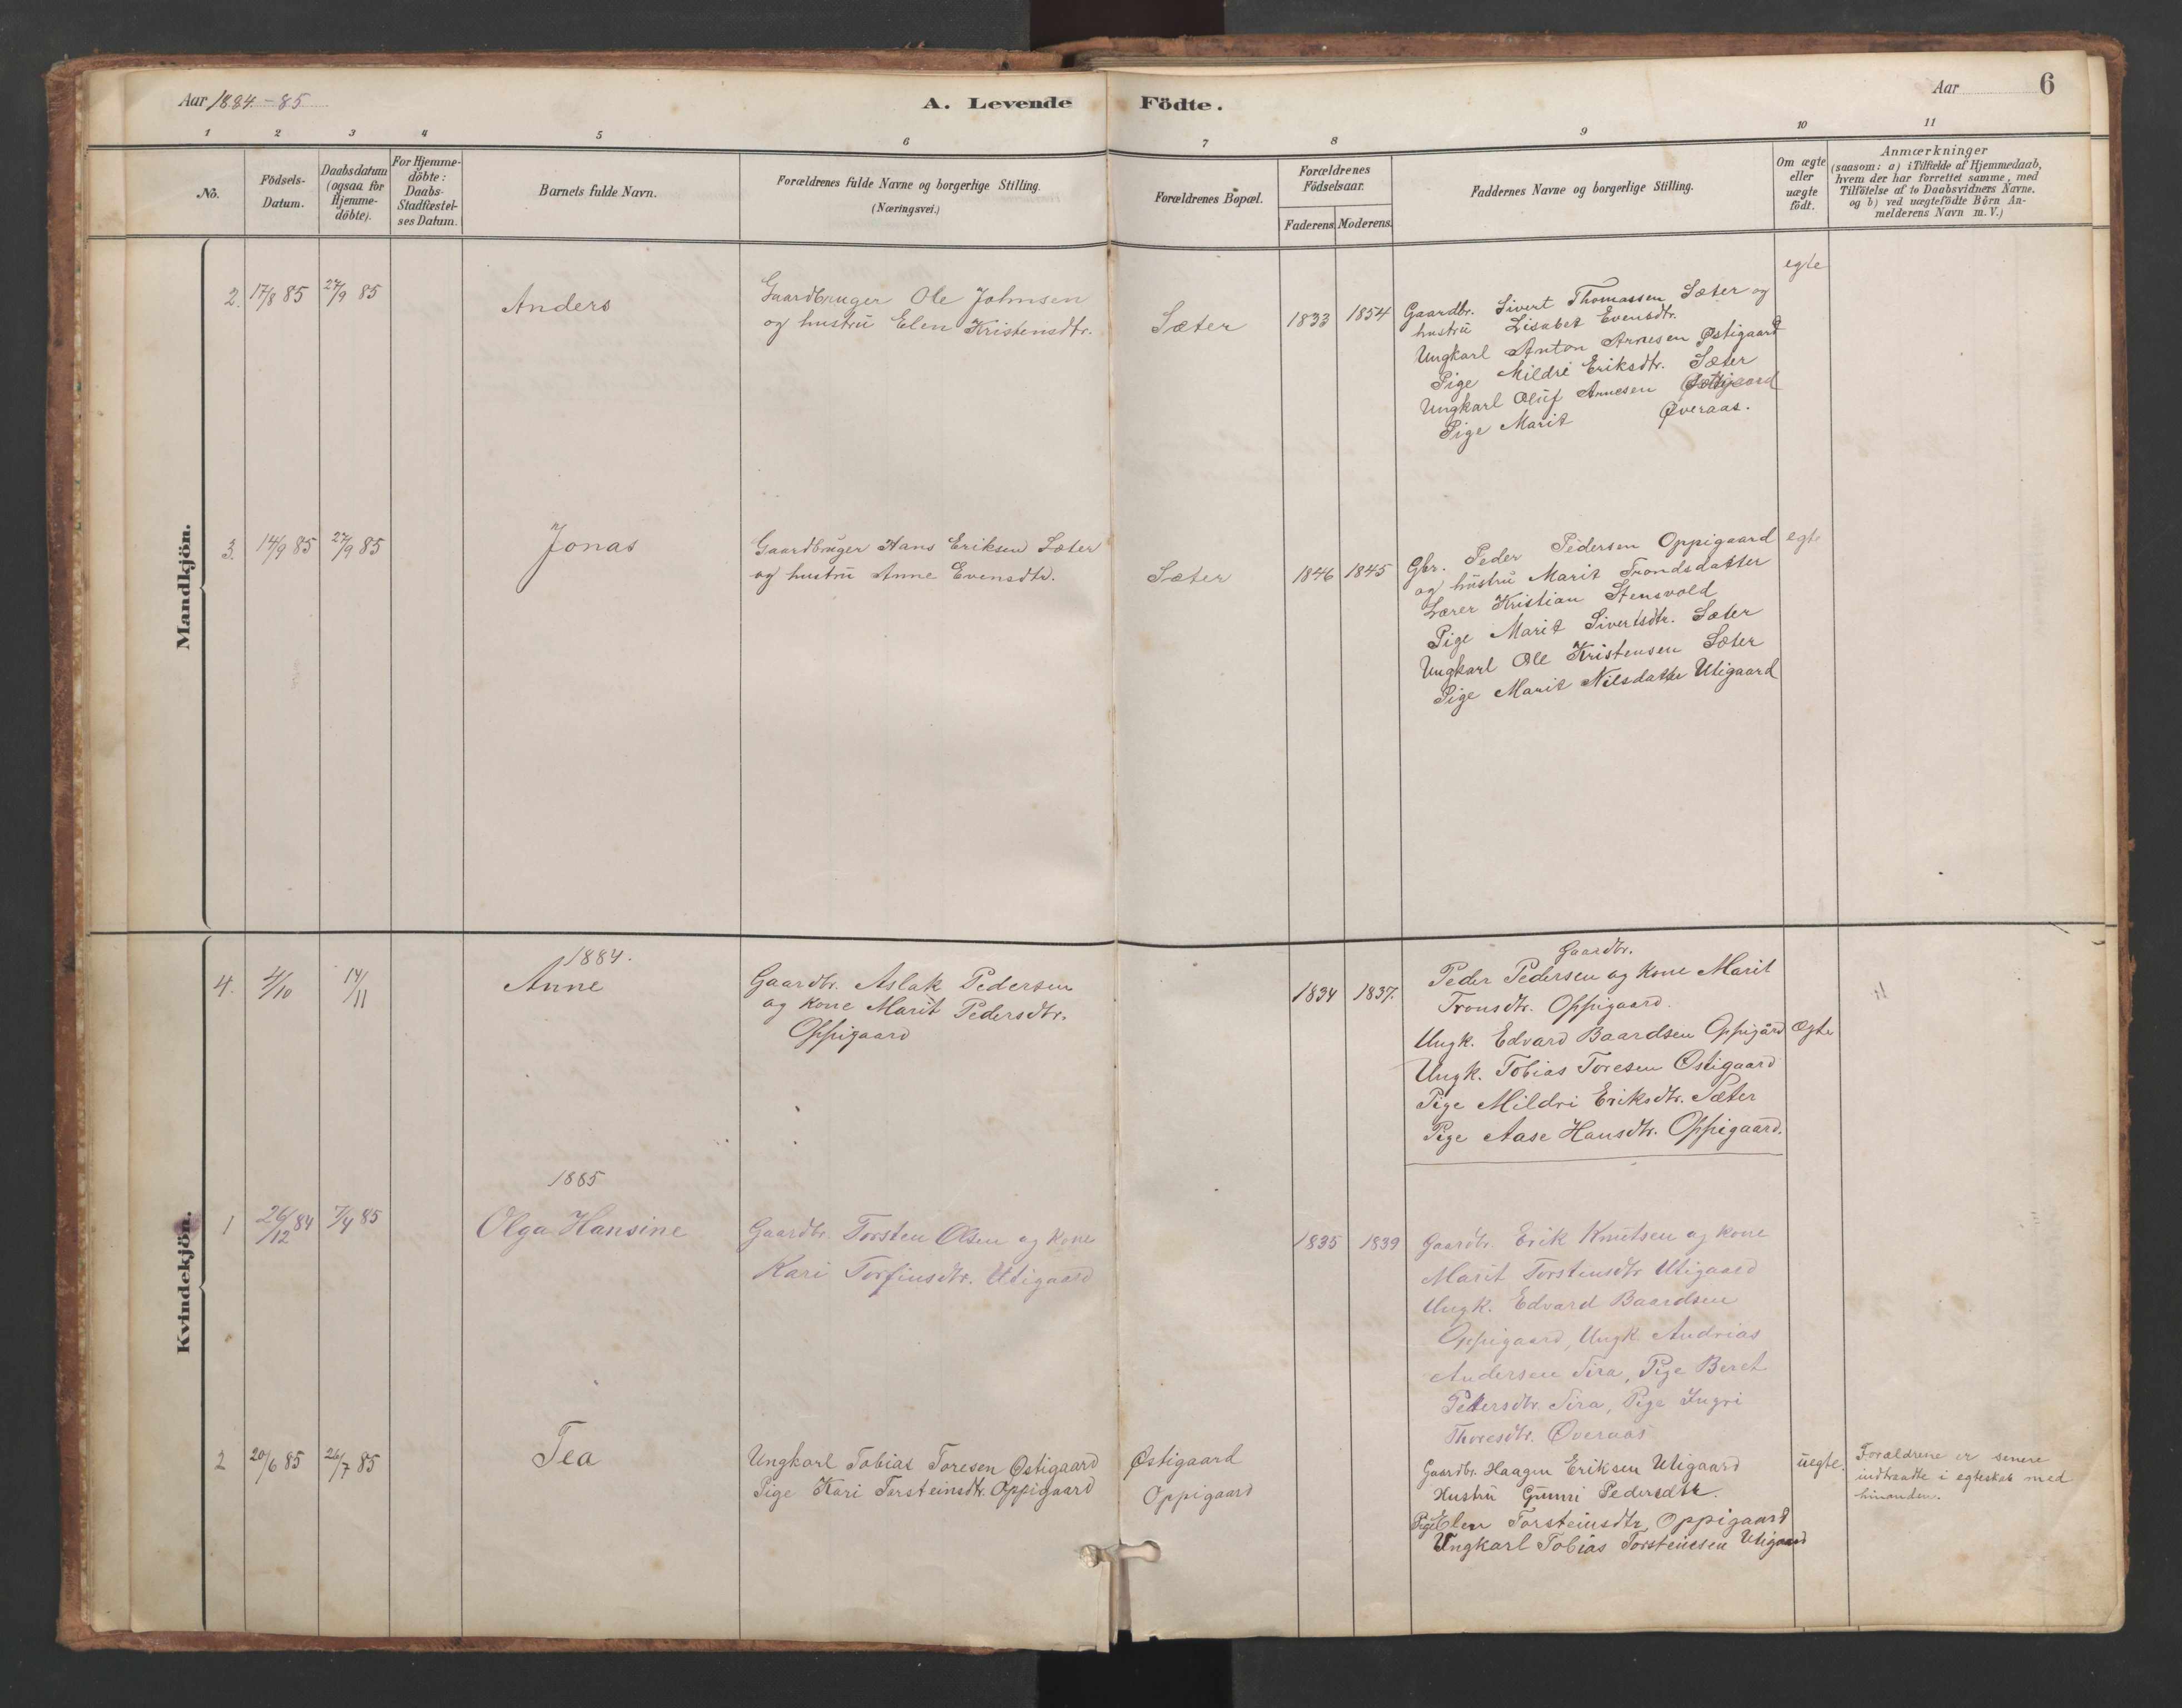 Aar 1884-85
A. Levende Födte.
Aar
6
1 2 3 4 5 6 7 8 9 10 11
No.
Födsels-
Datum.
Daabsdatum
(ogsaa för
Hjemme-
döbte).
For Hjemme-
döbte:
Daabs-
Stadfæstel-
ses Datum.
Barnets fulde Navn.
Forældrenes fulde Navne og borgerlige Stilling.
(Næringsvei.)
Forældrenes Bopæl.
Forældrenes
Födselsaar.
Faderens. Moderens.
Faddernes Navne og borgerlige Stilling.
Om ægte
eller
uægte
födt.
Anmærkninger
(saasom: a) i Tilfælde af Hjemmedaab,
hvem der har forrettet samme, med
Tilföielse af to Daabsvidners Navne.
og b) ved uægtefödte Börn An-
melderens Navn m.V.)
Mandkjön.
2. 17/8 85 27/9 85
Anders
Gaardbruger Ole Johnsen
og hustru Elen Kristensdtr.
Sæter
1833 1854
Gaardbr. Sivert Thomassen Sæter og
hustru Lisabet Evensdtr.
Ungkarl Anton Arnesen Østigaard
Pige Mildri Eriksdtr. Sæter
Ungkarl Oluf Arnesen
Pige Marit Øveraas.
egte
3. 14/9 85 27/9 85
Jonas
Gaardbruger Hans Eriksen Sæter
og hustru Anne Evensdtr.
Sæter
1846 1845
Gbr. Peder Pedersen Oppigaard
og hustru Marit Trondsdatter
Lærer Kristian Stensvold
Pige Marit Sivertsdtr. Sæter
Ungkarl Ole Kristensen Sæter
Pige Marit Nilsdatter Utigaard
egte
Kvindekjön.
1884.
4. 4/10 14/11
Anne
Gaardbr. Aslak Pedersen
og kone Marit Pedersdtr.
Oppigaard
1834 1837.
Gaardbr.
Peder Pedersen og kone Marit
Tronsdtr. Oppigaard.
Ungk. Edvard Baardsen Oppigård
Ungk. Tobias Toresen Østigaard
Pige Mildri Eriksdtr. Sæter
Pige Aase Hansdtr. Oppigaard.
Ægte
1885
1 26/12 84 7/4 85
Olga Hansine
Gaardbr. Torsten Olsen og kone
Kari Torfinsdtr. Utigaard
1835 1839
Gaardbr. Erik Knutsen og kone
Marit Torstensdtr Utigaard
Ungk. Edvard Baardsen
Oppigaard, Ungk. Andrias
Andersen Tira, Pige Beret
Pedersdtr. Tira, Pige Ingri
Thoresdtr. Øveraas
2 20/6 85 26/7 85
Tea
Ungkarl Tobias Toresen Østigaard
Pige Kari Torsteinsdtr. Oppigaard
Østigaard
Oppigaard
Gaardbr. Haagen Eriksen Utigaard
Hustru Gunni Pedersdtr.
Pige Elen Torsteinsdtr Oppigaard
Ungkarl Tobias Torsteinsen Utigaard
uegte.
Forældrene er senere
indtraadte i egteskab med
hinanden.